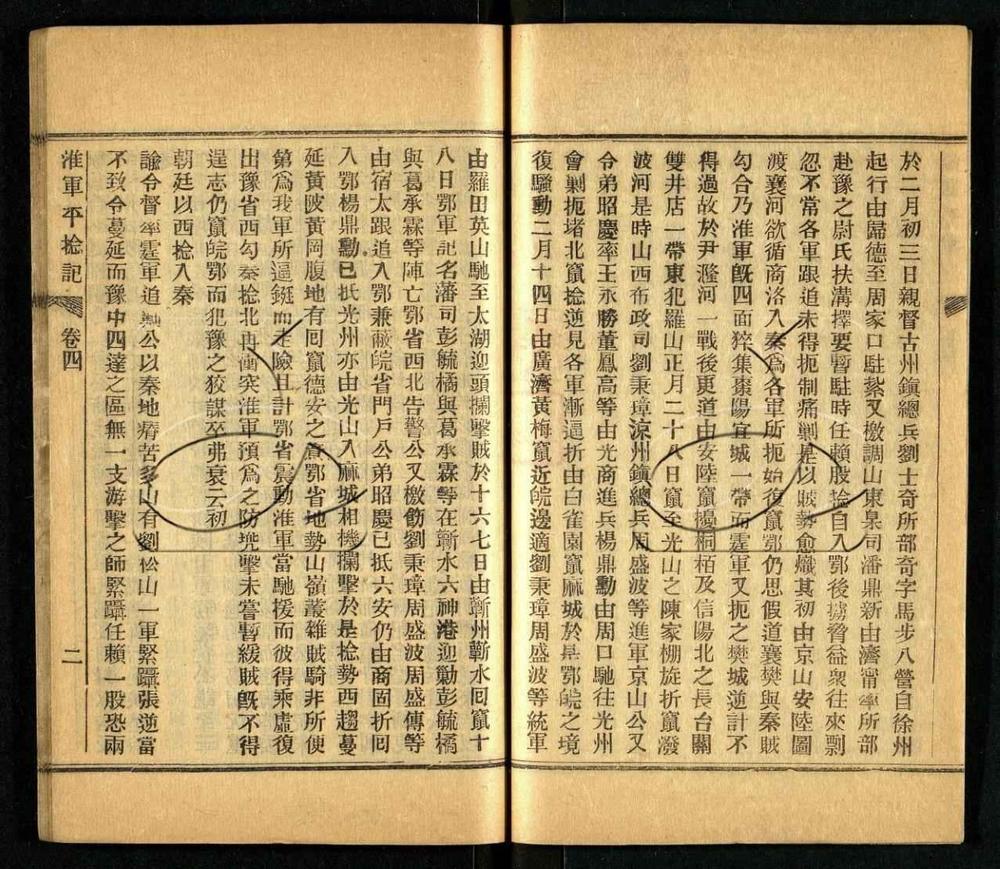 於二月初三日親督古州鎭總兵劉士奇所部奇字馬步八營自徐州
起行由歸德至周家口駐紮又檄調山東臬司潘鼎新由濟甯率所部
赴豫之尉氏扶溝擇要暫駐時任賴股捻自入鄂後擄脅益衆往來剽
忽不常各軍跟追未得扼制痛剿是以賊勢愈熾其初由京山安陸圖
渡襄河欲循商洛入秦爲各軍所扼始復竄鄂仍思假道襄樊與秦賊
勾合乃淮軍旣四面猝集棗陽宜城一帶而霆軍又扼之樊城逆計不
得過故於尹漋河一戰後更道由安陸竄擾桐柏及信陽北之長台關
雙井店一帶東犯羅山正月二十八日竄至光山之陳家棚旋折竄潑
波河是時山西布政司劉秉璋涼州鎭總兵周盛波等進軍京山公又
令弟昭慶率王永勝董鳳高等由光商進兵楊鼎勳由周口馳往光州
會剿扼堵北竄捻逆見各軍漸逼折由白雀園竄麻城於是鄂皖之境
復騷動二月十四日由廣濟黃梅竄近皖邊適劉秉璋周盛波等統軍
由羅田英山馳至太湖迎頭攔擊賊於十六七日由蘄州蘄水囘竄十
八日鄂軍記名藩司彭毓橘與葛承霖等在蘄水六神港迎勦彭毓橘
與葛承霖等陣亡鄂省西北告警公又檄飭劉秉璋周盛波周盛傳等
由宿太跟追入鄂兼蔽皖省門戶公弟昭慶已抵六安仍由商固折囘
入鄂楊鼎勳已抵光州亦由光山入麻城相機攔擊於是捻勢西趨蔓
延黃陂黃岡腹地有囘竄德安之意鄂省地勢山嶺叢雜賊騎非所便
第爲我軍所逼鋌而走險且計鄂省震動淮軍當馳援而彼得乘虛復
出豫省西勾秦捻北冉衝突淮軍預爲之防兜擊未嘗暫緩賊旣不得
逞志仍竄皖鄂而犯豫之狡謀卒弗衰云初
朝廷以西捻入秦
諭令督率霆軍追公以秦地瘠苦多山有劉松山一軍緊躡張逆當
不致令蔓延而豫中四達之區無一支游擊之師緊躡任賴一股恐兩
淮軍平捻記 卷四 二